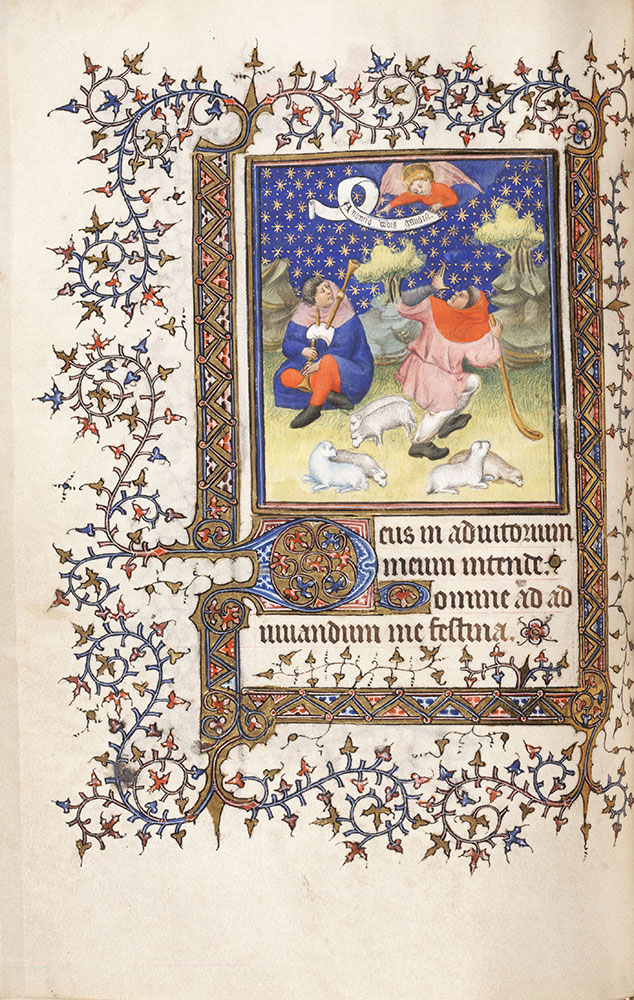 Annucio vobis gaudiu
Deus in adiutorium
meum intende.
Domine ad ad
iuuandum me festina.